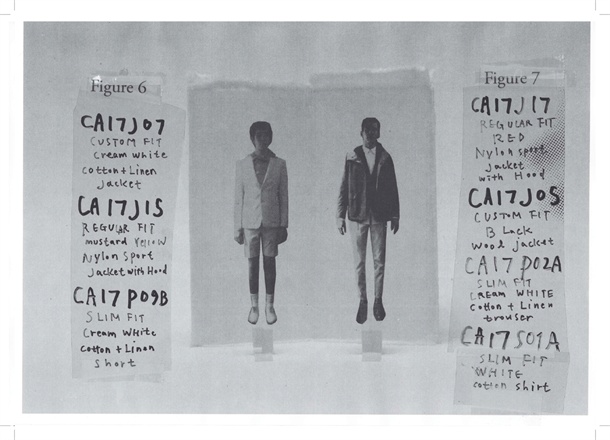 Figure 6
CA17J07
CUSTOM FIT
Cream white
cotton + Linen
Jacket
CA17J15
REGULAR FIT
mustard Yellow
Nylon Sport
Jacket with Hood
CA17P09B
SLIM FIT
Cream White
cotton + Linen
Short
Figure 7
CA17J17
REGULAR FIT
RED
Nylon sport
jacket
with Hood
CA17J05
CUSTOM FIT
BLack
wool jacket
CA17P02A
SLIM FIT
CREAM WHITE
cotton + Linen
trouser
CA17S01A
SLIM FIT
WHITE
cotton shirt